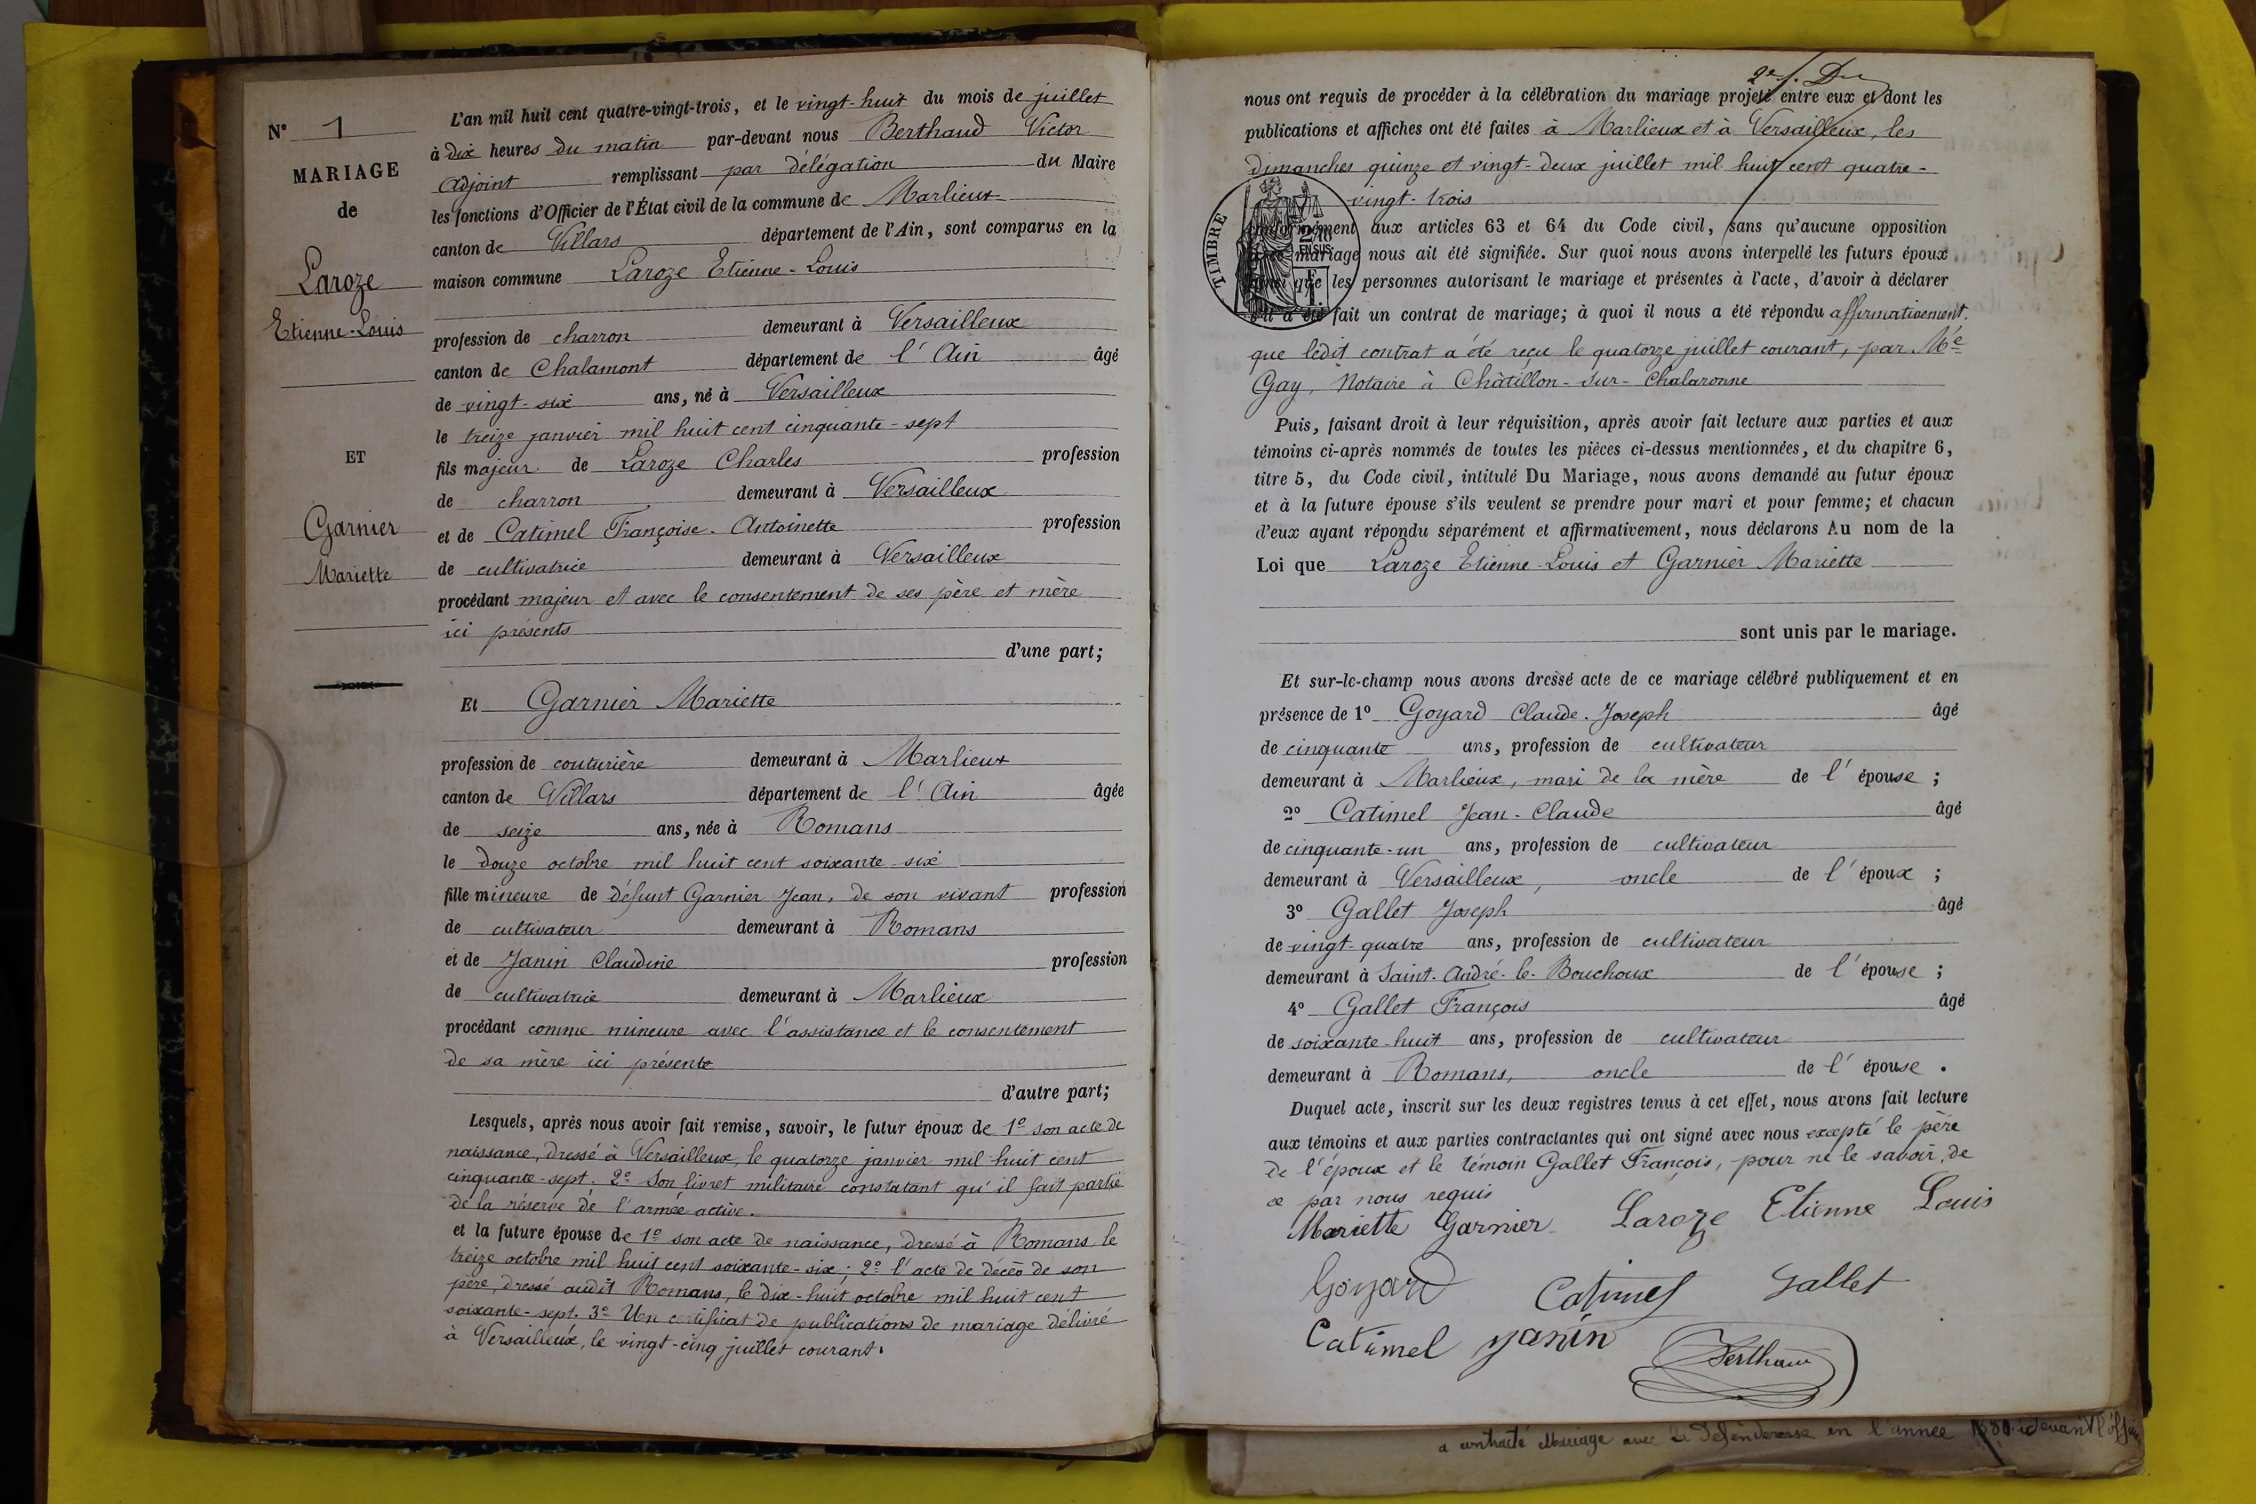 N° 1
MARIAGE
de
Laroze
Etienne-Louis
ET
Garnier
Mariette
L'an mil huit cent quatre-vingt-trois, et le vingt-huit du mois de juillet
à dix heures du matin par-devant nous Berthaud Victor
Adjoint remplissant par délégation du Maire
les fonctions d'Officier de l'État civil de la commune de Marlieux
canton de Villars département de l'Ain, sont comparus en la
maison commune Laroze Etienne-Louis
profession de charron demeurant à Versailleux
canton de Chalamont département de l'Ain âgé
de vingt-six ans, né à Versailleux
le treize janvier mil huit cent cinquante-sept
fils majeur de Laroze Charles profession
de charron demeurant à Versailleux
et de Catimel Françoise-Antoinette profession
de cultivatrice demeurant à Versailleux
procédant majeur et avec le consentement de ses père et mère
ici présents
d'une part;
Et Garnier Mariette
profession de couturière demeurant à Marlieux
canton de Villars département de l'Ain âgée
de seize ans, née à Romans
le douze octobre mil huit cent soixante-six
fille mineure de défunt Garnier Jean, de son vivant profession
de cultivateur demeurant à Romans
et de Janin Claudine profession
de cultivatrice demeurant à Marlieux
procédant comme mineure avec l'assistance et le consentement
de sa mère ici présente
d'autre part;
Lesquels, après nous avoir fait remise, savoir, le futur époux de 1° son acte de
naissance, dressé à Versailleux, le quatorze janvier mil huit cent
cinquante-sept. 2° Son livret militaire constatant qu'il fait partie
de la réserve de l'armée active.
et la future épouse de 1° son acte de naissance, dressé à Romans le
treize octobre mil huit cent soixante-six; 2° l'acte de décès de son
père, dressé audit Romans, le dix-huit octobre mil huit cent
soixante-sept. 3° Un certificat de publications de mariage délivré
à Versailleux, le vingt-cinq juillet courant.
nous ont requis de procéder à la célébration du mariage projeté entre eux et dont les
publications et affiches ont été faites à Marlieux et à Versailleux, les
dimanches quinze et vingt-deux juillet mil huit cent quatre-
vingt-trois
TIMBRE
2/10
EN SUS
conformément aux articles 63 et 64 du Code civil, sans qu'aucune opposition
mariage nous ait été signifiée. Sur quoi nous avons interpellé les futurs époux
que les personnes autorisant le mariage et présentes à l'acte, d'avoir à déclarer
s'il a été fait un contrat de mariage; à quoi il nous a été répondu affirmativement.
que ledit contrat a été reçu le quatorze juillet courant, par Me
Gay, Notaire à Châtillon-sur-Chalaronne
Puis, faisant droit à leur réquisition, après avoir fait lecture aux parties et aux
témoins ci-après nommés de toutes les pièces ci-dessus mentionnées, et du chapitre 6,
titre 5, du Code civil, intitulé Du Mariage, nous avons demandé au futur époux
et à la future épouse s'ils veulent se prendre pour mari et pour femme; et chacun
d'eux ayant répondu séparément et affirmativement, nous déclarons Au nom de la
Loi que Laroze Etienne-Louis et Garnier Mariette
sont unis par le mariage.
Et sur-le-champ nous avons dressé acte de ce mariage célébré publiquement et en
présence de 1° Goyard Claude-Joseph âgé
de cinquante ans, profession de cultivateur
demeurant à Marlieux, mari de la mère de l'épouse;
2° Catimel Jean-Claude âgé
de cinquante-un ans, profession de cultivateur
demeurant à Versailleux, oncle de l'époux;
3° Gallet Joseph âgé
de vingt-quatre ans, profession de cultivateur
demeurant à Saint-André-le-Bouchoux de l'épouse;
4° Gallet François âgé
de soixante-huit ans, profession de cultivateur
demeurant à Romans, oncle de l'épouse.
Duquel acte, inscrit sur les deux registres tenus à cet effet, nous avons fait lecture
aux témoins et aux parties contractantes qui ont signé avec nous excepté le père
de l'époux et le témoin Gallet François, pour ne le savoir, de
ce par nous requis
Mariette Garnier Laroze Etienne Louis
Goyard Catimel Gallet
Catimel Janin Berthaud
a contracté Mariage avec la Défenderesse en l'année devant